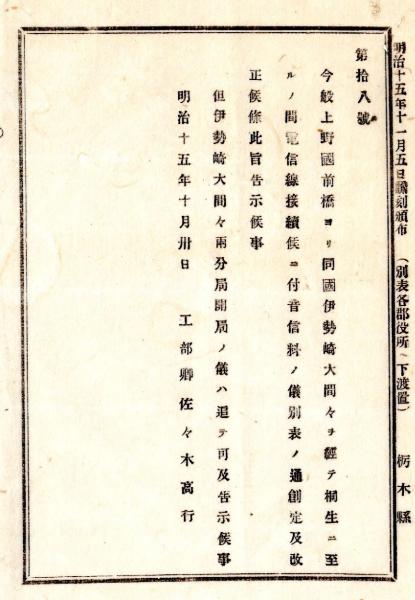 明治十五年十一月五日飜刻頒布 (別表各郡役所ヘ下渡置) 栃木縣
第拾八號
今般上野國前橋ヨリ同國伊勢崎大間々ヲ經テ桐生ニ至
ルノ間電信線接續候ニ付音信料ノ儀別表ノ通創定及改
正候條此旨告示候事
但伊勢崎大間々兩分局開局ノ儀ハ追テ可及告示候事
明治十五年十月卅日 工部卿佐々木高行